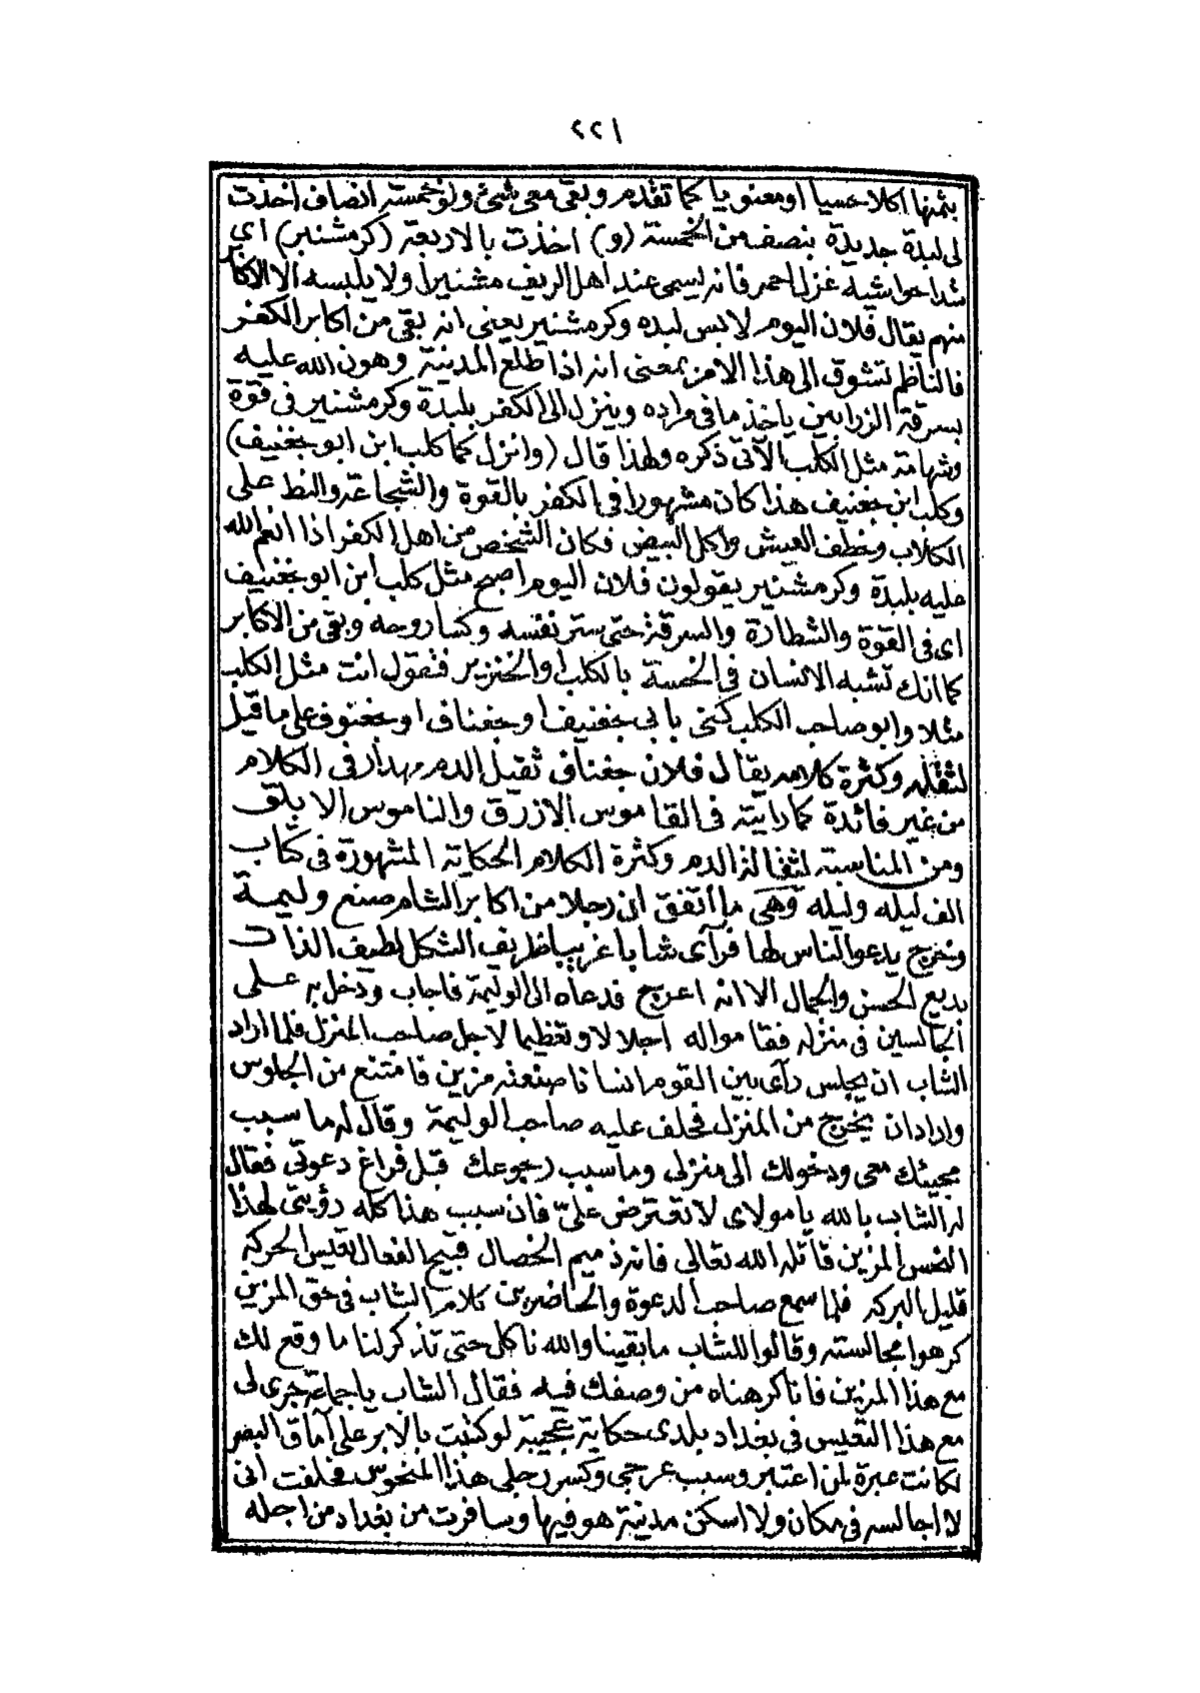 ٢٢١
بثمنها اكلا حسيا او معنويا كما تقدم وبقى معى شئ ولو خمسة انصاف اخذت
لى لبدة جديدة بنصف من الخمسة (و) اخذت بالاربعة (كرمشنير) اى
شدا حواشيه غزل احمر فانه يسمى عند اهل الريف مشنيرا ولا يلبسه الا الاكابر
منهم يقال فلان اليوم لابس لبده وكرمشنير يعنى انه بقى من اكابر الكفر
فالناظم تشوق الى هذا الامر بمعنى انه اذا طلع المدينة وهون الله عليه
بسرقة الزرابين ياخذ ما فى مراده وينزل الى الكفر بلبدة وكرمشنير فى قوة
وشهامة مثل الكلب الآتى ذكره ولهذا قال (وانزل كما كلب ابن ابو جغنيف)
وكلب ابن جغنيف هذا كان مشهورا فى الكفر بالقوة والشجاعة والنط على
الكلاب وخطف العيش واكل البيض فكان الشخص من اهل الكفر اذا انعم الله
عليه بلبدة وكرمشنير يقولون فلان اليوم اصبح مثل كلب ابن ابو جغنيف
اى فى القوة والشطارة والسرقة حتى ستر نفسه وكسا روحه وبقى من الاكابر
كما انك تشبه الانسان فى الخسة بالكلب او الخنزير فتقول انت مثل الكلب
مثلا وابو صاحب الكلب كنى بابى جغنيف او جغناف او جغنوف على ما قيل
لثقله وكثرة كلامه يقال فلان جغناف ثقيل الدم مهدار فى الكلام
من غير فائدة كما رايته فى القاموس الازرق والناموس الابلق
ومن المناسبة لثقالة الدم وكثرة الكلام الحكاية المشهورة فى كتاب
الف ليله وليله وهى ما اتفق ان رجلا من اكابر الشام صنع وليمة
وخرج يدعو الناس لها فرآى شابا غريبا ظريف الشكل لطيف الذات
بديع الحسن والجمال الا انه اعرج فدعاه الى الوليمة فاجاب ودخل به على
الجالسين فى منزله فقاموا له اجلالا وتعظيما لاجل صاحب المنزل فلما اراد
الشاب ان يجلس رآى بين القوم انسانا صنعته مزين فامتنع من الجلوس
واراد ان يخرج من المنزل فحلف عليه صاحب الوليمة وقال له ما سبب
مجيئك معى ودخولك الى منزلى وما سبب رجوعك قبل فراغ دعوتى فقال
له الشاب بالله يا مولاى لا تعترض علىّ فان سبب هذا كله رؤيتى لهذا
النحس المزين قاتله الله تعالى فانه ذميم الخصال قبيح الفعال تعيس الحركه
قليل البركه فلما سمع صاحب الدعوة والحاضرين كلام الشاب فى حق المزين
كرهوا مجالسته وقالوا للشاب ما بقينا والله ناكل حتى تذكر لنا ما وقع لك
مع هذا المزين فاناكرهناه من وصفك فيه فقال الشاب يا جماعة جرى لى
مع هذا التعيس فى بغداد بلدى حكاية عجيبة لو كتبت بالابر على آماق البصر
لكانت عبرة لمن اعتبر وسبب عرجى وكسر رجلى هذا المنحوس فحلفت انى
لا اجالسه فى مكان ولا اسكن مدينة هو فيها وسافرت من بغداد من اجله